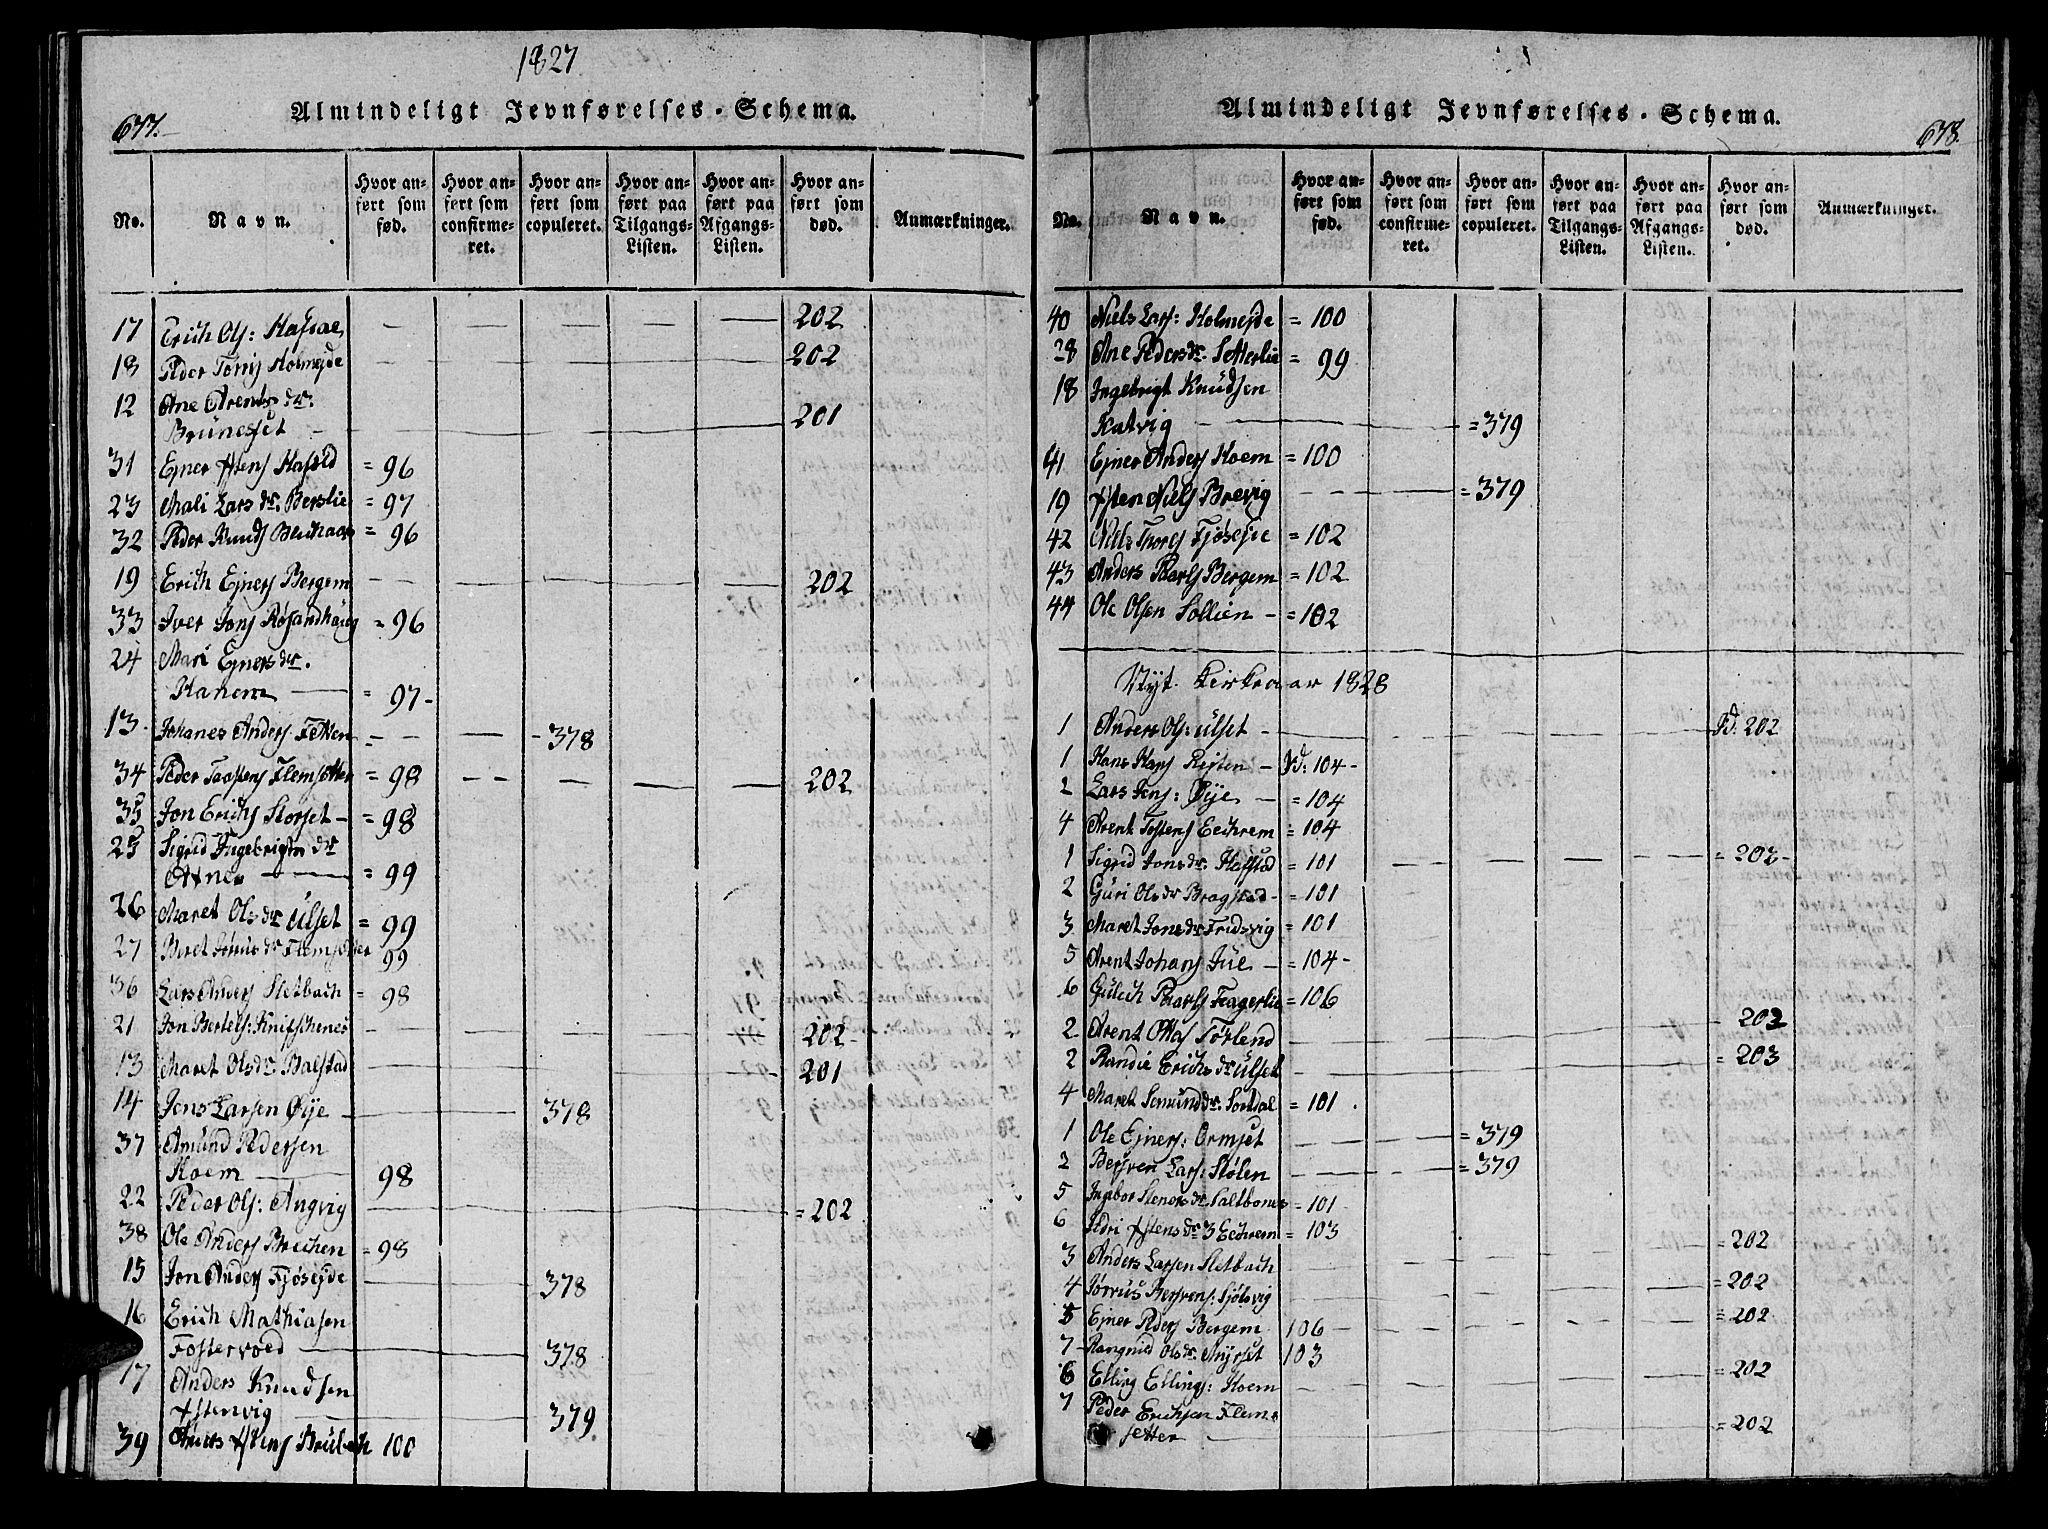 1827
677.
Almindeligt Jevnførelses-Schema.
No. | Navn. | Hvor anført som fød. | Hvor anført som confirmeret. | Hvor anført som copuleret. | Hvor anført paa Tilgangs-Listen. | Hvor anført paa Afgangs-Listen. | Hvor anført som død. | Anmærkninger.
17 Erich Ols: Hafsae 202
18 Peder Tøris Holmejde 202
12 Ane Arents dr.
Bruneset 201
31 Ejner Istens Hafstd = 96
23 Mali Lars dr. Berslie = 97
32 Peder Knuds = 96
19 Erich Ejners Bergem 202
33 Iver Jons Røsandhaug = 96
24 Mari Ejners dr.
Hanem = 97-
13 Johanes Anders. - 378
34 Peder Flemsetter = 98 202
35 Jon Erichs Storset = 98
25 Sigrid Ingebrigts dr
= 99
26 Maret Ols dr Ulset = 99
27 Beret dr Flemsetter 99
36 Lars Anders Sletbach = 98
21 Jon Bertels: 202-
13 Maret Ols dr. Balstad 201
14 Jens Larsen Øye 378
37 Amund Pedersen
Koem 98
22 Peder Ols: Angvig = 202
38 Ole Anders Brechen = 98
15 Jon Anders Fjøsejde 378
16 Erich Mathiasen
Fostervoed 378
17 Anders Knudsen
Istenvig 379
39 Istens Brubech 100
678.
Almindeligt Jevnførelses-Schema.
No. | Navn. | Hvor anført som fød. | Hvor anført som confirmeret. | Hvor anført som copuleret. | Hvor anført paa Tilgangs-Listen. | Hvor anført paa Afgangs-Listen. | Hvor anført som død. | Anmærkninger.
40 Niels Lars: Holmejde = 100
28 Ane Peders dr. Setterlie = 99
18 Ingebrigt Knudsen
Katvig = 379
41 Ejner Anders Koem = 100
19 Isten Niels Brevig = 379
42 Niels Thores Fjøsejde = 102
43 Anders Paarls Bergem = 102
44 Ole Olsen Sollien = 102
Nyt. Kirkeaar 1828
1 Anders Ols: Ulset Pd. 202
1 Hans Hans Risten Pd: 104-
2 Lars Jens: Øye = 104
4 Arent Tostens Eechrem = 104
1 Sigrid Jons dr. Hafstad = 101 = 203-
2 Guri Ols dr Bragstad = 101
3 Maret Jons dr Fridsvig = 101
5 Arent Johans Jue = 104-
6 Gulich Paarls Fagerlie = 106
2 Arent Torlend 202
2 Randie Erichs dr Ulset = 203
4 Maret Semund dr. Sordal = 101
1 Ole Ejners: Ormset = 379
2 Bersven Lars: Stølen = 379
5 Ingebor Steners dr = 101
6 Istens dr Eechrem = 103
3 Anders Larsen Sletbach = 202
4 Jørrus Bersvens: Sjølsvig = 202
5 Ejner Peders Bergem 106 = 202
7 Rangnid Ols dr. Myrset 103
6 Elling Ellings: Koem = 202
7 Peder Erichsen Flem-
setter = 202